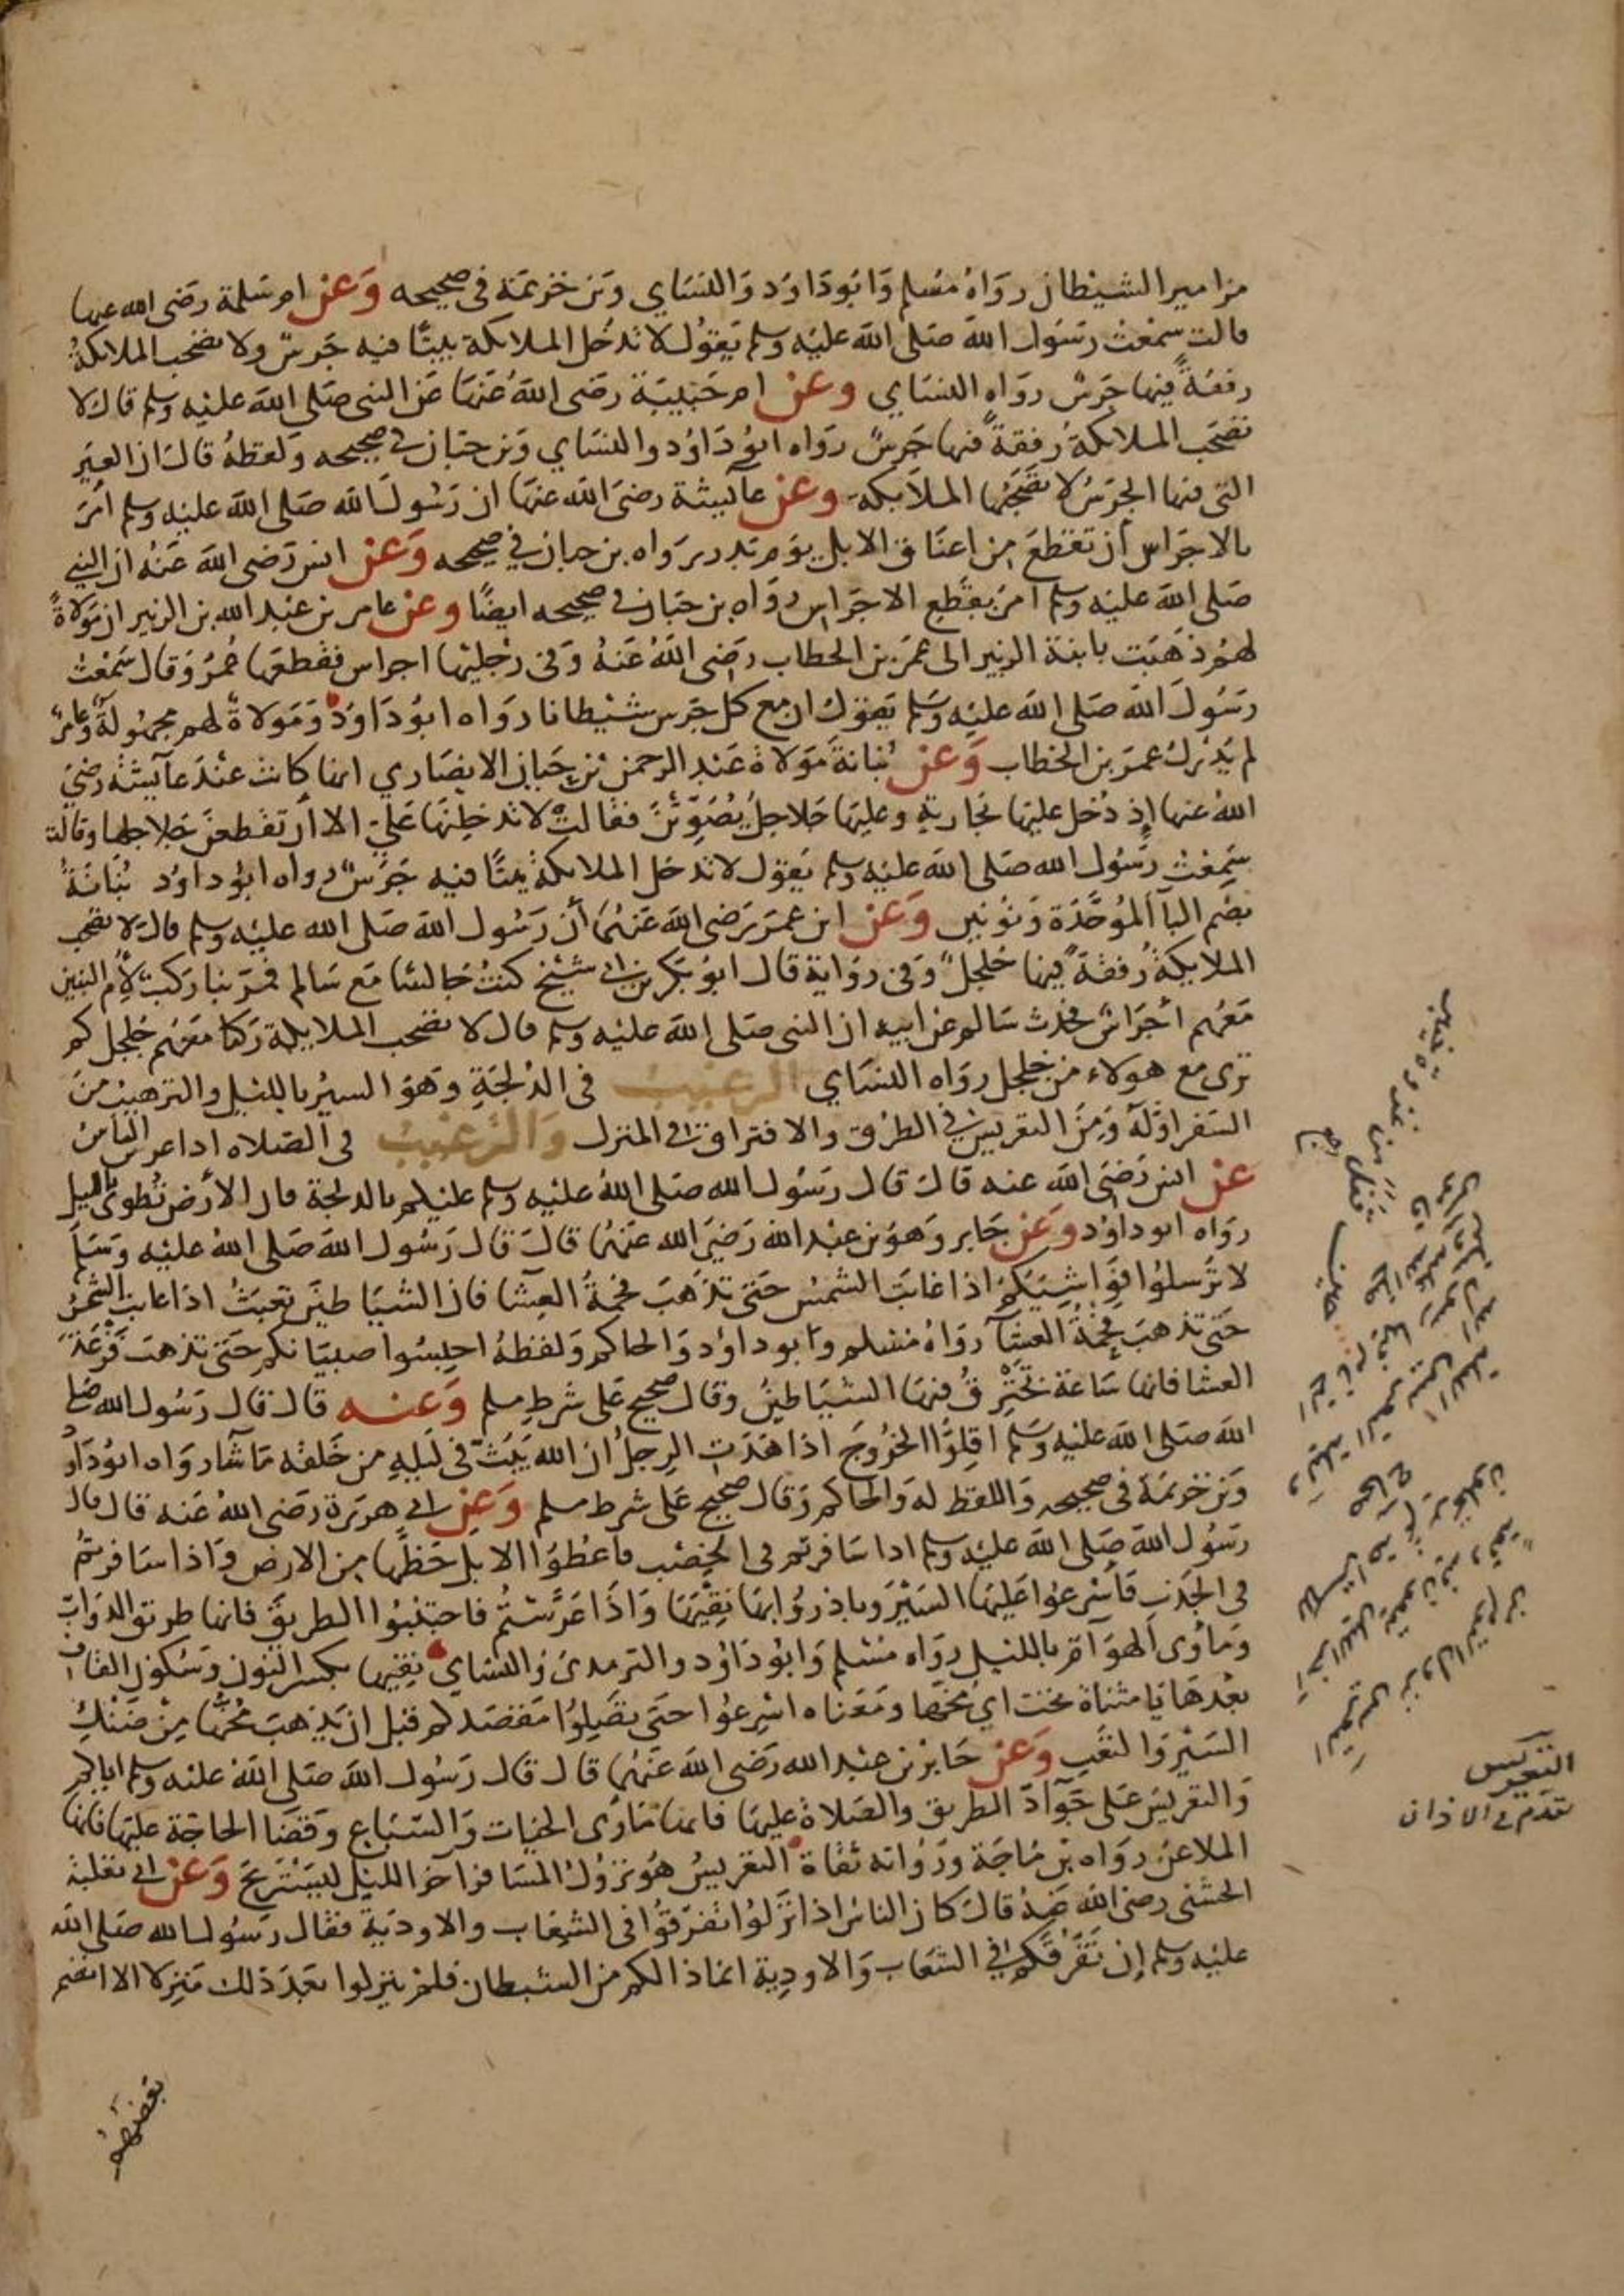 مزامير الشيطان رواه مسلم وابو داود والنساي وبن خزيمة في صحيحه وعن ام سلمة رضى الله عنها
قالت سمعت رسول الله صلى الله عليه وسلم يقول لا تدخل الملايكة بيتا فيه جرس ولا تصحب الملايكة
رفقة فيها جرس رواه النساي وعن ام حبيبة رضى الله عنها عن النبى صلى الله عليه وسلم قال لا
تصحب الملايكة رفقة فيها جرس رواه ابو داود والنساي وبن حبان في صحيحه ولفظه قال ان العير
التى فيها الجرس لا تصحبها الملايكة وعن عآيشة رضى الله عنها ان رسول الله صلى الله عليه وسلم امر
بالاجراس أن تقطع من اعناق الابل يوم بدر رواه بن حبان في صحيحه وعن انس رضى الله عنه ان النبي
صلى الله عليه وسلم امر بقطع الاجراس رواه بن حبان في صحيحه ايضا وعن عامر بن عبد الله بن الزبير ان مولاة
لهم ذهبت بابنة الزبير الى عمر بن الخطاب رضى الله عنه وفى رجليها اجراس فقطعها عمر وقال سمعت
رسول الله صلى الله عليه وسلم يقول ان مع كل جرس شيطانا رواه ابو داود ومولاة لهم مجهولة وعامر
لم يدرك عمر بن الخطاب وعن بنانة مولاة عبد الرحمن بن حيان الانصاري انها كانت عند عآيشة رضي
الله عنها إذ دخل عليها بجارية وعليها جلاجل يصوتن فقالت لا تدخلنها علي الا أن تقطعن جلاجلها وقالت
سمعت رسول الله صلى الله عليه وسلم يقول لا تدخل الملايكة بيتا فيه جرس رواه ابو داود بنانة
بضم البآ الموحدة ونونين وعن ابن عمر رضى الله عنهما أن رسول الله صلى الله عليه وسلم قال لا تصحب
الملايكة رفقة فيها جلجل وفى رواية قال ابو بكر بن ابى شيخ كنت جالسا مع سالم فمر بنا ركب لأم البنين
معهم أجراس فحدث سالم عن ابيه ان النبى صلى الله عليه وسلم قال لا تصحب الملايكة ركبا معهم جلجل كم
ترى مع هولاء من جلجل رواه النساي الترغيب فى الدلجة وهو السير بالليل والترهيب من
السفر اوله ومن التعريس في الطرق والافتراق في المنزل والترغيب فى الصلاة اذا عرس الناس
عن انس رضى الله عنه قال قال رسول الله صلى الله عليه وسلم عليكم بالدلجة فان الأرض تطوى بالليل
رواه ابو داود وعن جابر وهو بن عبد الله رضي الله عنهما قال قال رسول الله صلى الله عليه وسلم
لا ترسلوا فواشيكم اذا غابت الشمس حتى تذهب فحمة العشا فان الشياطين تعبث اذا غابت الشمس
حتى تذهب فحمة العشآ رواه مسلم وابو داود والحاكم ولفظه احبسوا صبيانكم حتى تذهب فوعة
العشا فانها ساعة تخترق فيها الشياطين وقال صحيح على شرط مسلم وعنه قال قال رسول الله صلى
الله صلى الله عليه وسلم اقلوا الخروج اذا هدت الرجل ان الله يبث فى ليله من خلقه ما شآ رواه ابو داود
وبن خزيمة فى صحيحه واللفظ له والحاكم وقال صحيح على شرط مسلم وعن ابي هريرة رضى الله عنه قال قال
رسول الله صلى الله عليه وسلم اذا سافرتم فى الخصب فاعطوا الابل حظها من الارض واذا سافرتم
فى الجدب فأسرعوا عليها السير وبادروا بها نقيها واذا عرستم فاجتنبوا الطريق فانها طرق الدواب
ومأوى الهوآم بالليل رواه مسلم وابو داود والترمذى والنساي نقيها بكسر النون وسكون القاف
بعدها يا مثناة تحت اي مخها ومعناه اسرعوا حتى تصلوا مقصدكم قبل ان يذهب مخها من ضنك
السير والتعب وعن جابر بن عبد الله رضى الله عنهما قال قال رسول الله صلى الله عليه وسلم اياكم
والتعريس على جوآد الطريق والصلاة عليها فانها مأوى الحيات والسباع وقضا الحاجة عليها فانها
الملاعن رواه بن ماجة ورواته ثقاة التعريس هو نزول المسافر آخر الليل ليستريح وعن ابي ثعلبة
الخشنى رضى الله عنه قال كان الناس اذا نزلوا تفرقوا فى الشعاب والاودية فقال رسول الله صلى الله
عليه وسلم إن تفرقكم في الشعاب والاودية انما ذالكم من الشيطان فلم ينزلوا بعد ذلك منزلا الا انضم
بعضهم
التعريس
تقدم في الاذان